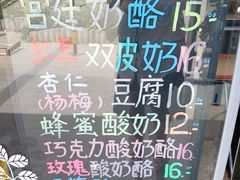 宫廷奶酪 15.-
红豆双皮奶 16.-
杏仁豆腐 10.-
(杨梅)
蜂蜜酸奶 12.-
巧克力酸奶酪 16.-
玫瑰酸奶酪 16.-